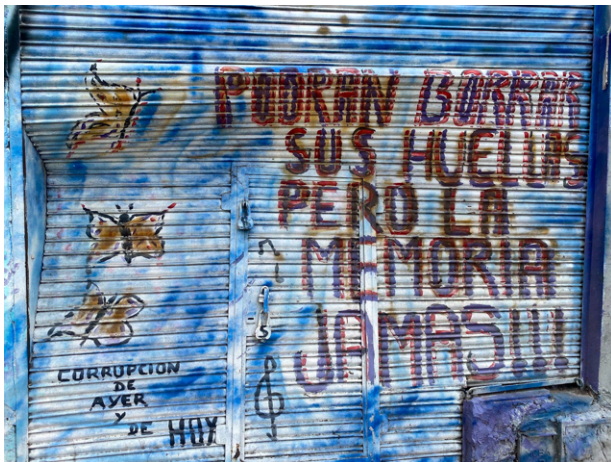 PODRAN BORRAR
SUS HUELLAS
PERO LA
MEMORIA
JAMAS!!!
CORRUPCION
DE
AYER
Y
DE HOY